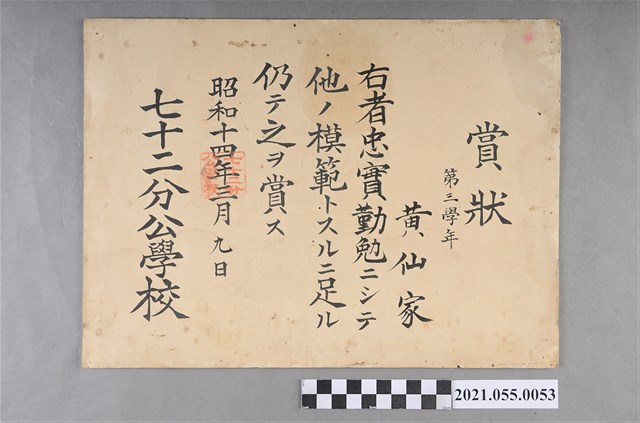 賞狀
第三學年
黃仙家
右者忠實勤勉ニシテ
他ノ模範トスルニ足ル
仍テ之ヲ賞ス
昭和十四年三月九日
七十二分公學校
2021.055.0053